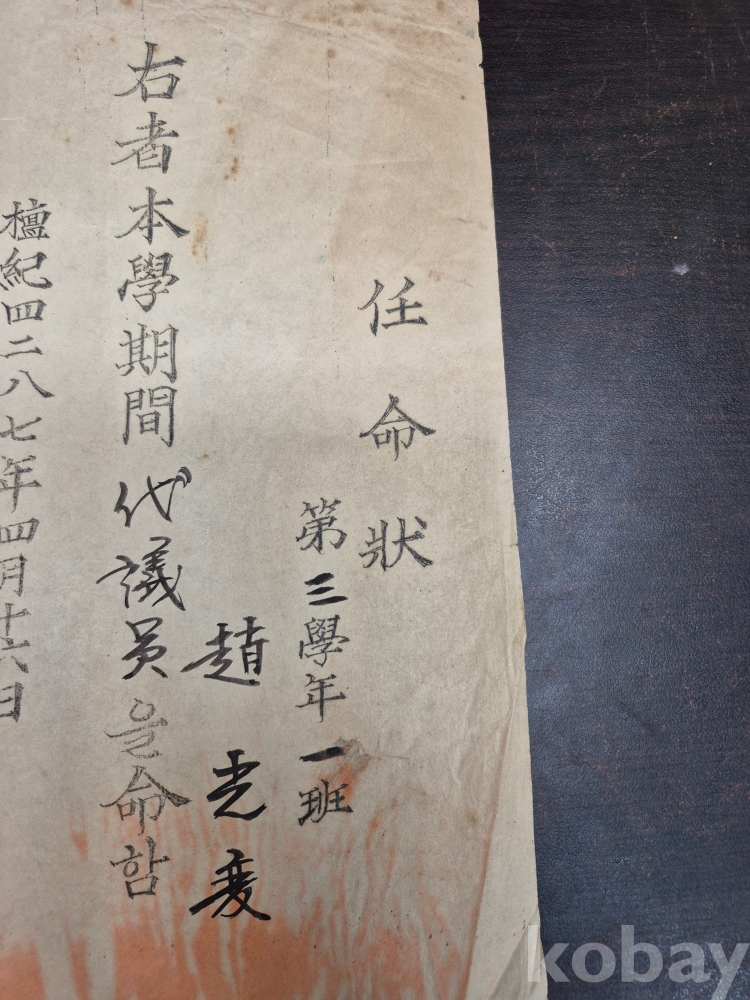 任命狀
第三學年一班
趙光
右者本學期間代議員을命함
檀紀四二八七年四月十六日
kobay